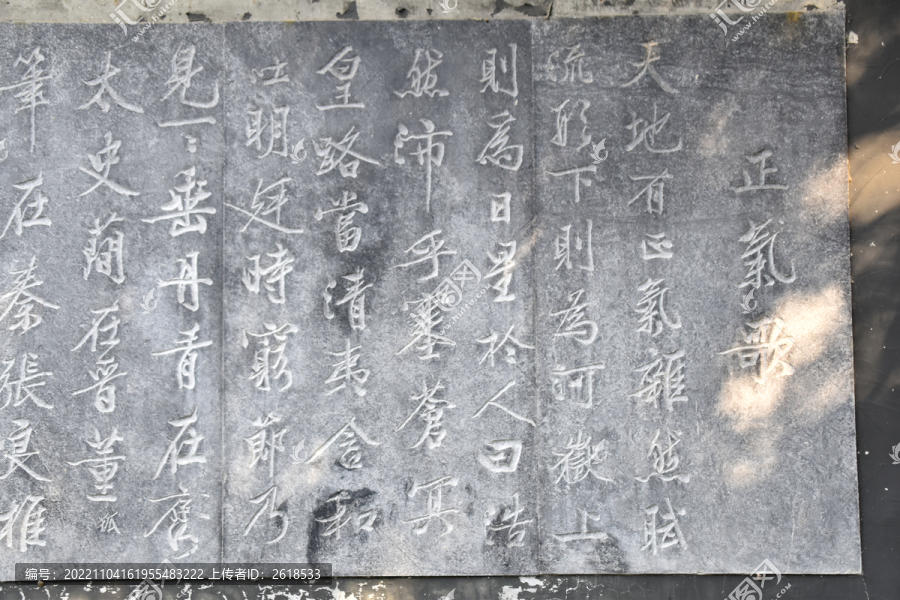 正氣歌
天地有正氣雜然賦
流形下則為河嶽上
則為日星於人曰浩
然沛乎塞蒼冥
皇路當清夷含和
吐明廷時窮節乃
見一々垂丹青在齊
太史簡在晉董狐
筆在秦張良椎
编号：20221104161955483222 上传者ID：2618533